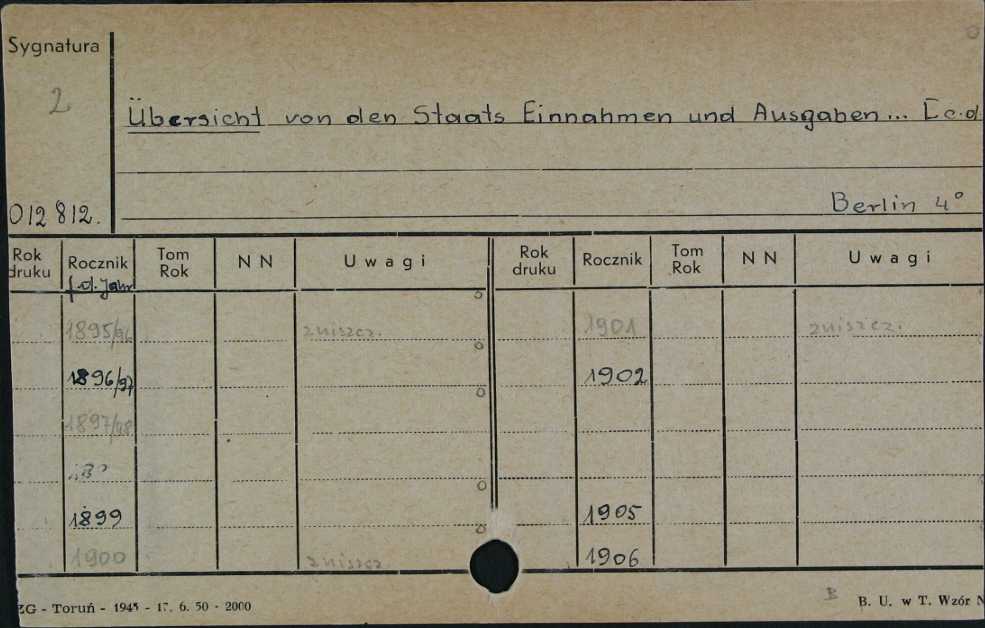 Sygnatura
2
Übersicht von den Staats Einnahmen und Ausgaben... [c.d.
012812.
Berlin 4°
Rok druku Rocznik Tom Rok NN Uwagi Rok druku Rocznik Tom Rok NN Uwagi
f.d. Jahr
1895/96 zniszcz. 1901 zniszcz.
1896/97 1902
1897/98
1899 1905
1900 zniszcz 1906
ZG - Toruń - 1945 - 17. 6. 50 - 2000
B
B. U. w T. Wzór N